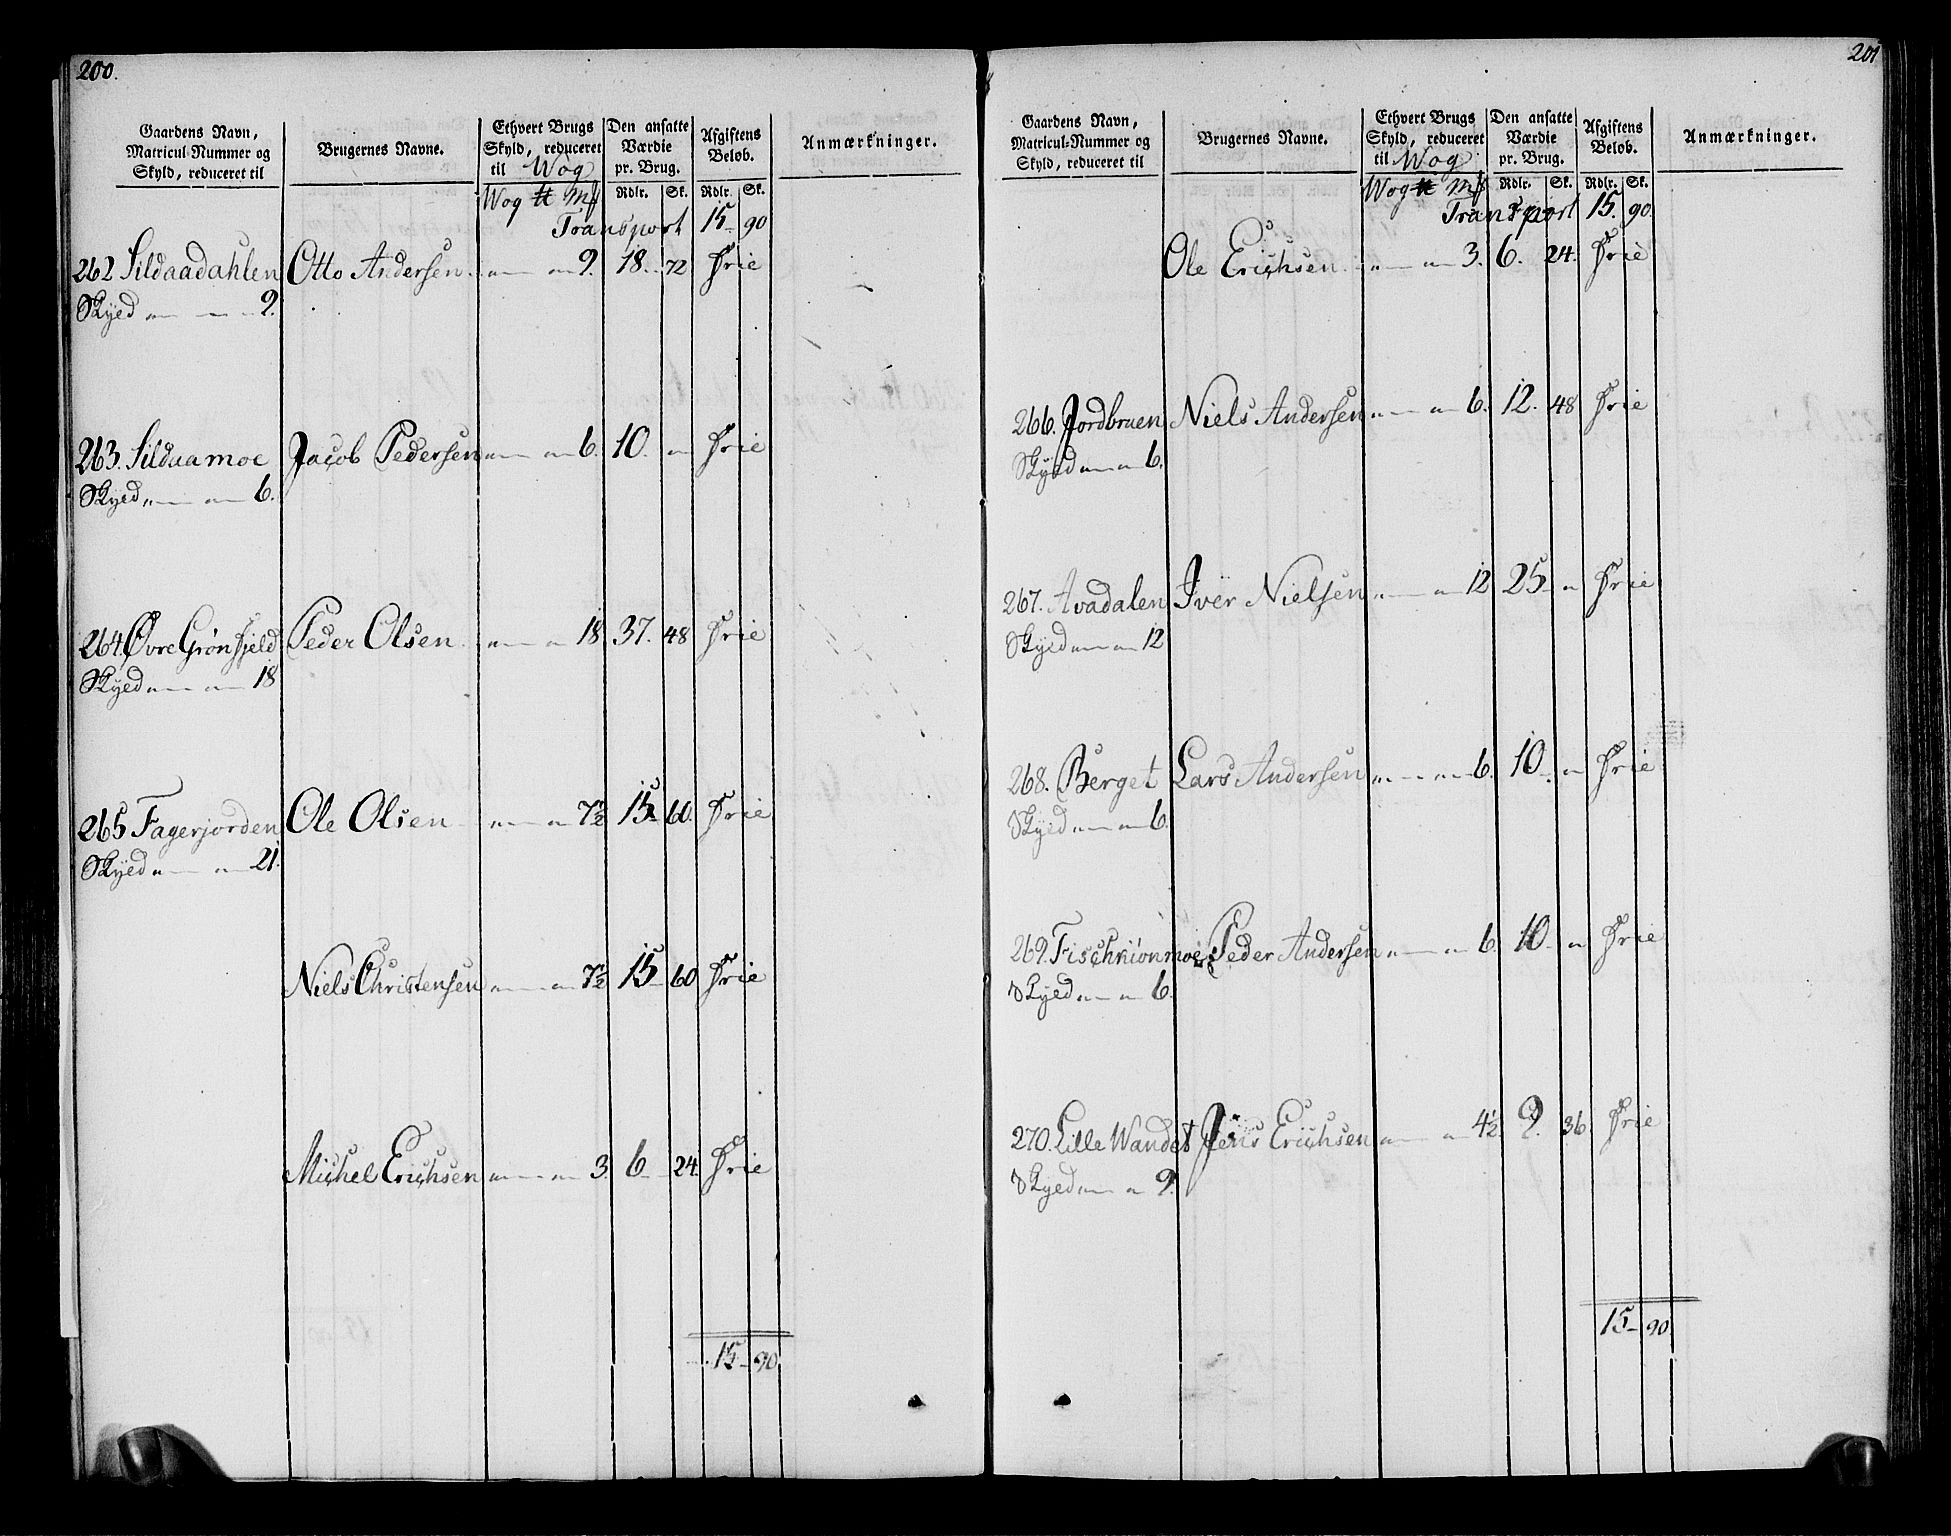 200.
Gaardens Navn, Matricul-Nummer og Skyld, reduceret til | Brugernes Navne. | Ethvert Brugs Skyld, reduceret til Wog | Den ansatte Værdie pr. Brug. | Afgiftens Beløb. | Anmærkninger.
Wog ℔ Mk | Rdlr. | Sk. | Rdlr. | Sk.
Transport 15 90
262 Sildaadahlen Otto Andersen " " 9. 18. 72 Frie
Skyed " " 9.
263. Sildaamoe Jacob Pedersen " " 6. 10. " Frie
Skyed " " 6.
264. Øvre Grønfjeld Peder Olsen " " 18 37. 48 Frie
Skyed " " 18
265 Fagerjorden Ole Olsen " " 7½ 15 60. Frie
Skyed " " 21.
Niels Christensen " " 7½ 15 60 Frie
Michel Erichsen " " 3. 6 24. Frie
15 90
201
Gaardens Navn, Matricul-Nummer og Skyld, reduceret til | Brugernes Navne. | Ethvert Brugs Skyld, reduceret til Wog | Den ansatte Værdie pr. Brug. | Afgiftens Beløb. | Anmærkninger.
Wog ℔ Mk | Rdlr. | Sk. | Rdlr. | Sk.
Transport 15. 90.
Ole Erichsen " " 3. 6. 24. Frie
266. Jordbruen Niels Andersen " " 6. 12. 48 Frie
Skyed " " 6.
267. Avadalen Iver Nielsen " " 12 25 " Frie
Skyed " " 12
268. Berget Lars Andersen " " 6. 10 " Frie
Skyed " " 6.
269. Fischkiønmoe Peder Andersen " " 6. 10 " Frie
Skyed " " 6.
270. Lille Wandet Jens Erichsen " " 4½ 9. 36. Frie
Skyed " " 9.
15 90